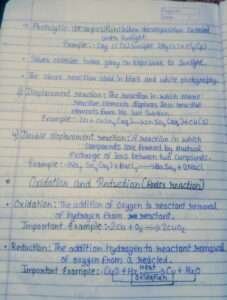 • Photolytic decomposition: When decomposition carried
with sunlight
Example:- 2Agcl (s) Sunlight 2Ag (s) + Cl2 (g)
• Silver chloride turns grey on exposure to sunlight.
• The above reaction used in black and white photography.
Displacement reaction: The reaction in which more
reactive elements displaces less reactive
elements from its salt solution.
Example:-
Double displacement reaction: A reaction in which
compounds are formed by mutual
exchange of ions between two compounds.
Example:- Na2 SO4 + BaCl2 → Ba SO4 + 2NaCl
• Oxidation and Reduction (Redox reaction)
• Oxidation: The addition of oxygen to reactant removal
of hydrogen from reactant.
Important Example:- 2Cu + O2 → 2CuO
• Reduction: The addition hydrogen to reactant removal
of oxygen from a
Important Example:- CuO + H2 Heat → Cu + H2O
Oxidation